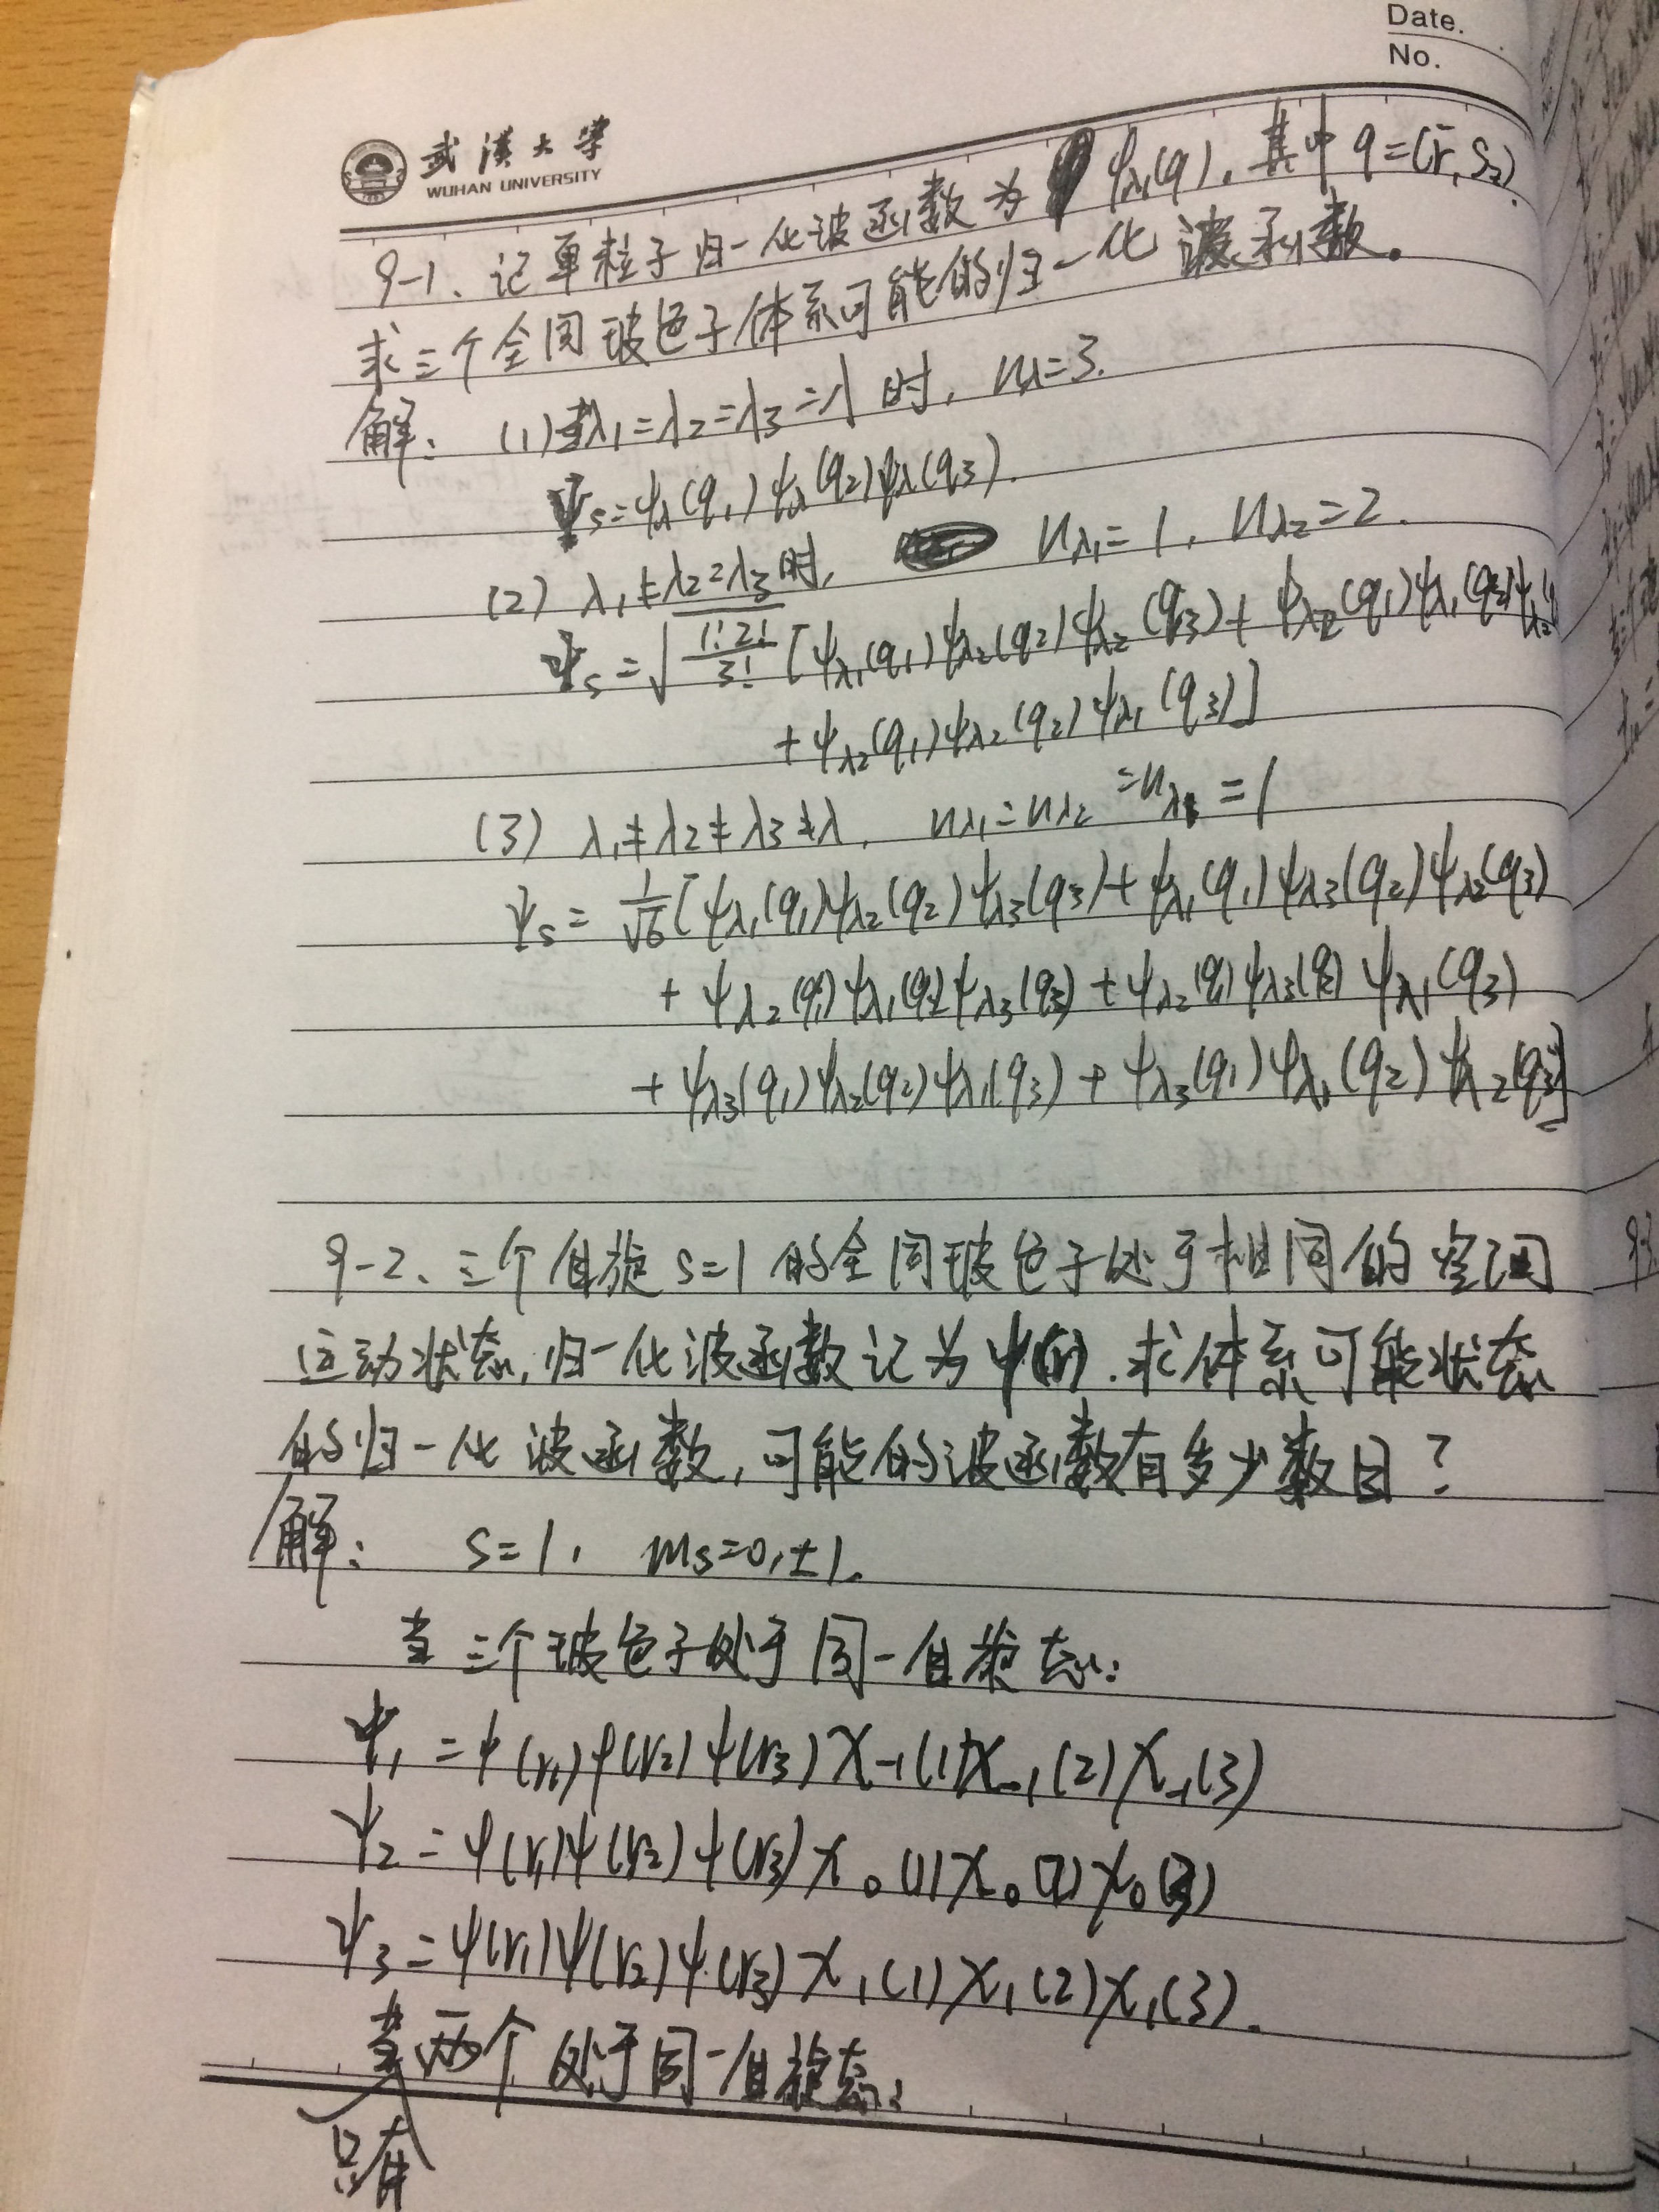 Date.
No.
武汉大学
WUHAN UNIVERSITY
9-1、记单粒子归一化波函数为 ψλ(q), 其中 q=(r⃗, S_z)
求三个全同玻色子体系可能的归一化波函数。
解: (1) 当λ₁=λ₂=λ₃=λ 时, nλ=3.
Ψs=ψλ(q₁)ψλ(q₂)ψλ(q₃).
(2) λ₁≠λ₂=λ₃时, nλ₁=1, nλ₂=2.
Ψs=√(1!2!/3!) [ψλ₁(q₁)ψλ₂(q₂)ψλ₂(q₃)+ψλ₂(q₁)ψλ₁(q₂)ψλ₂
+ψλ₂(q₁)ψλ₂(q₂)ψλ₁(q₃)]
(3) λ₁≠λ₂≠λ₃≠λ, nλ₁=nλ₂=nλ₃=1
Ψs=1/√6[ψλ₁(q₁)ψλ₂(q₂)ψλ₃(q₃)+ψλ₁(q₁)ψλ₃(q₂)ψλ₂(q₃)
+ψλ₂(q₁)ψλ₁(q₂)ψλ₃(q₃)+ψλ₂(q₁)ψλ₃(q₂)ψλ₁(q₃)
+ψλ₃(q₁)ψλ₂(q₂)ψλ₁(q₃)+ψλ₃(q₁)ψλ₁(q₂)ψλ₂(q₃)]
9-2、三个自旋 s=1 的全同玻色子处于相同的空间
运动状态, 归一化波函数记为ψ(r). 求体系可能状态
的归一化波函数, 可能的波函数有多少数目?
解: s=1, ms=0,±1.
当三个玻色子处于同一自旋态:
Ψ₁=ψ(r₁)ψ(r₂)ψ(r₃)χ₋₁(1)χ₋₁(2)χ₋₁(3)
Ψ₂=ψ(r₁)ψ(r₂)ψ(r₃)χ₀(1)χ₀(2)χ₀(3)
Ψ₃=ψ(r₁)ψ(r₂)ψ(r₃)χ₁(1)χ₁(2)χ₁(3).
当两个处于同一自旋态:
只有